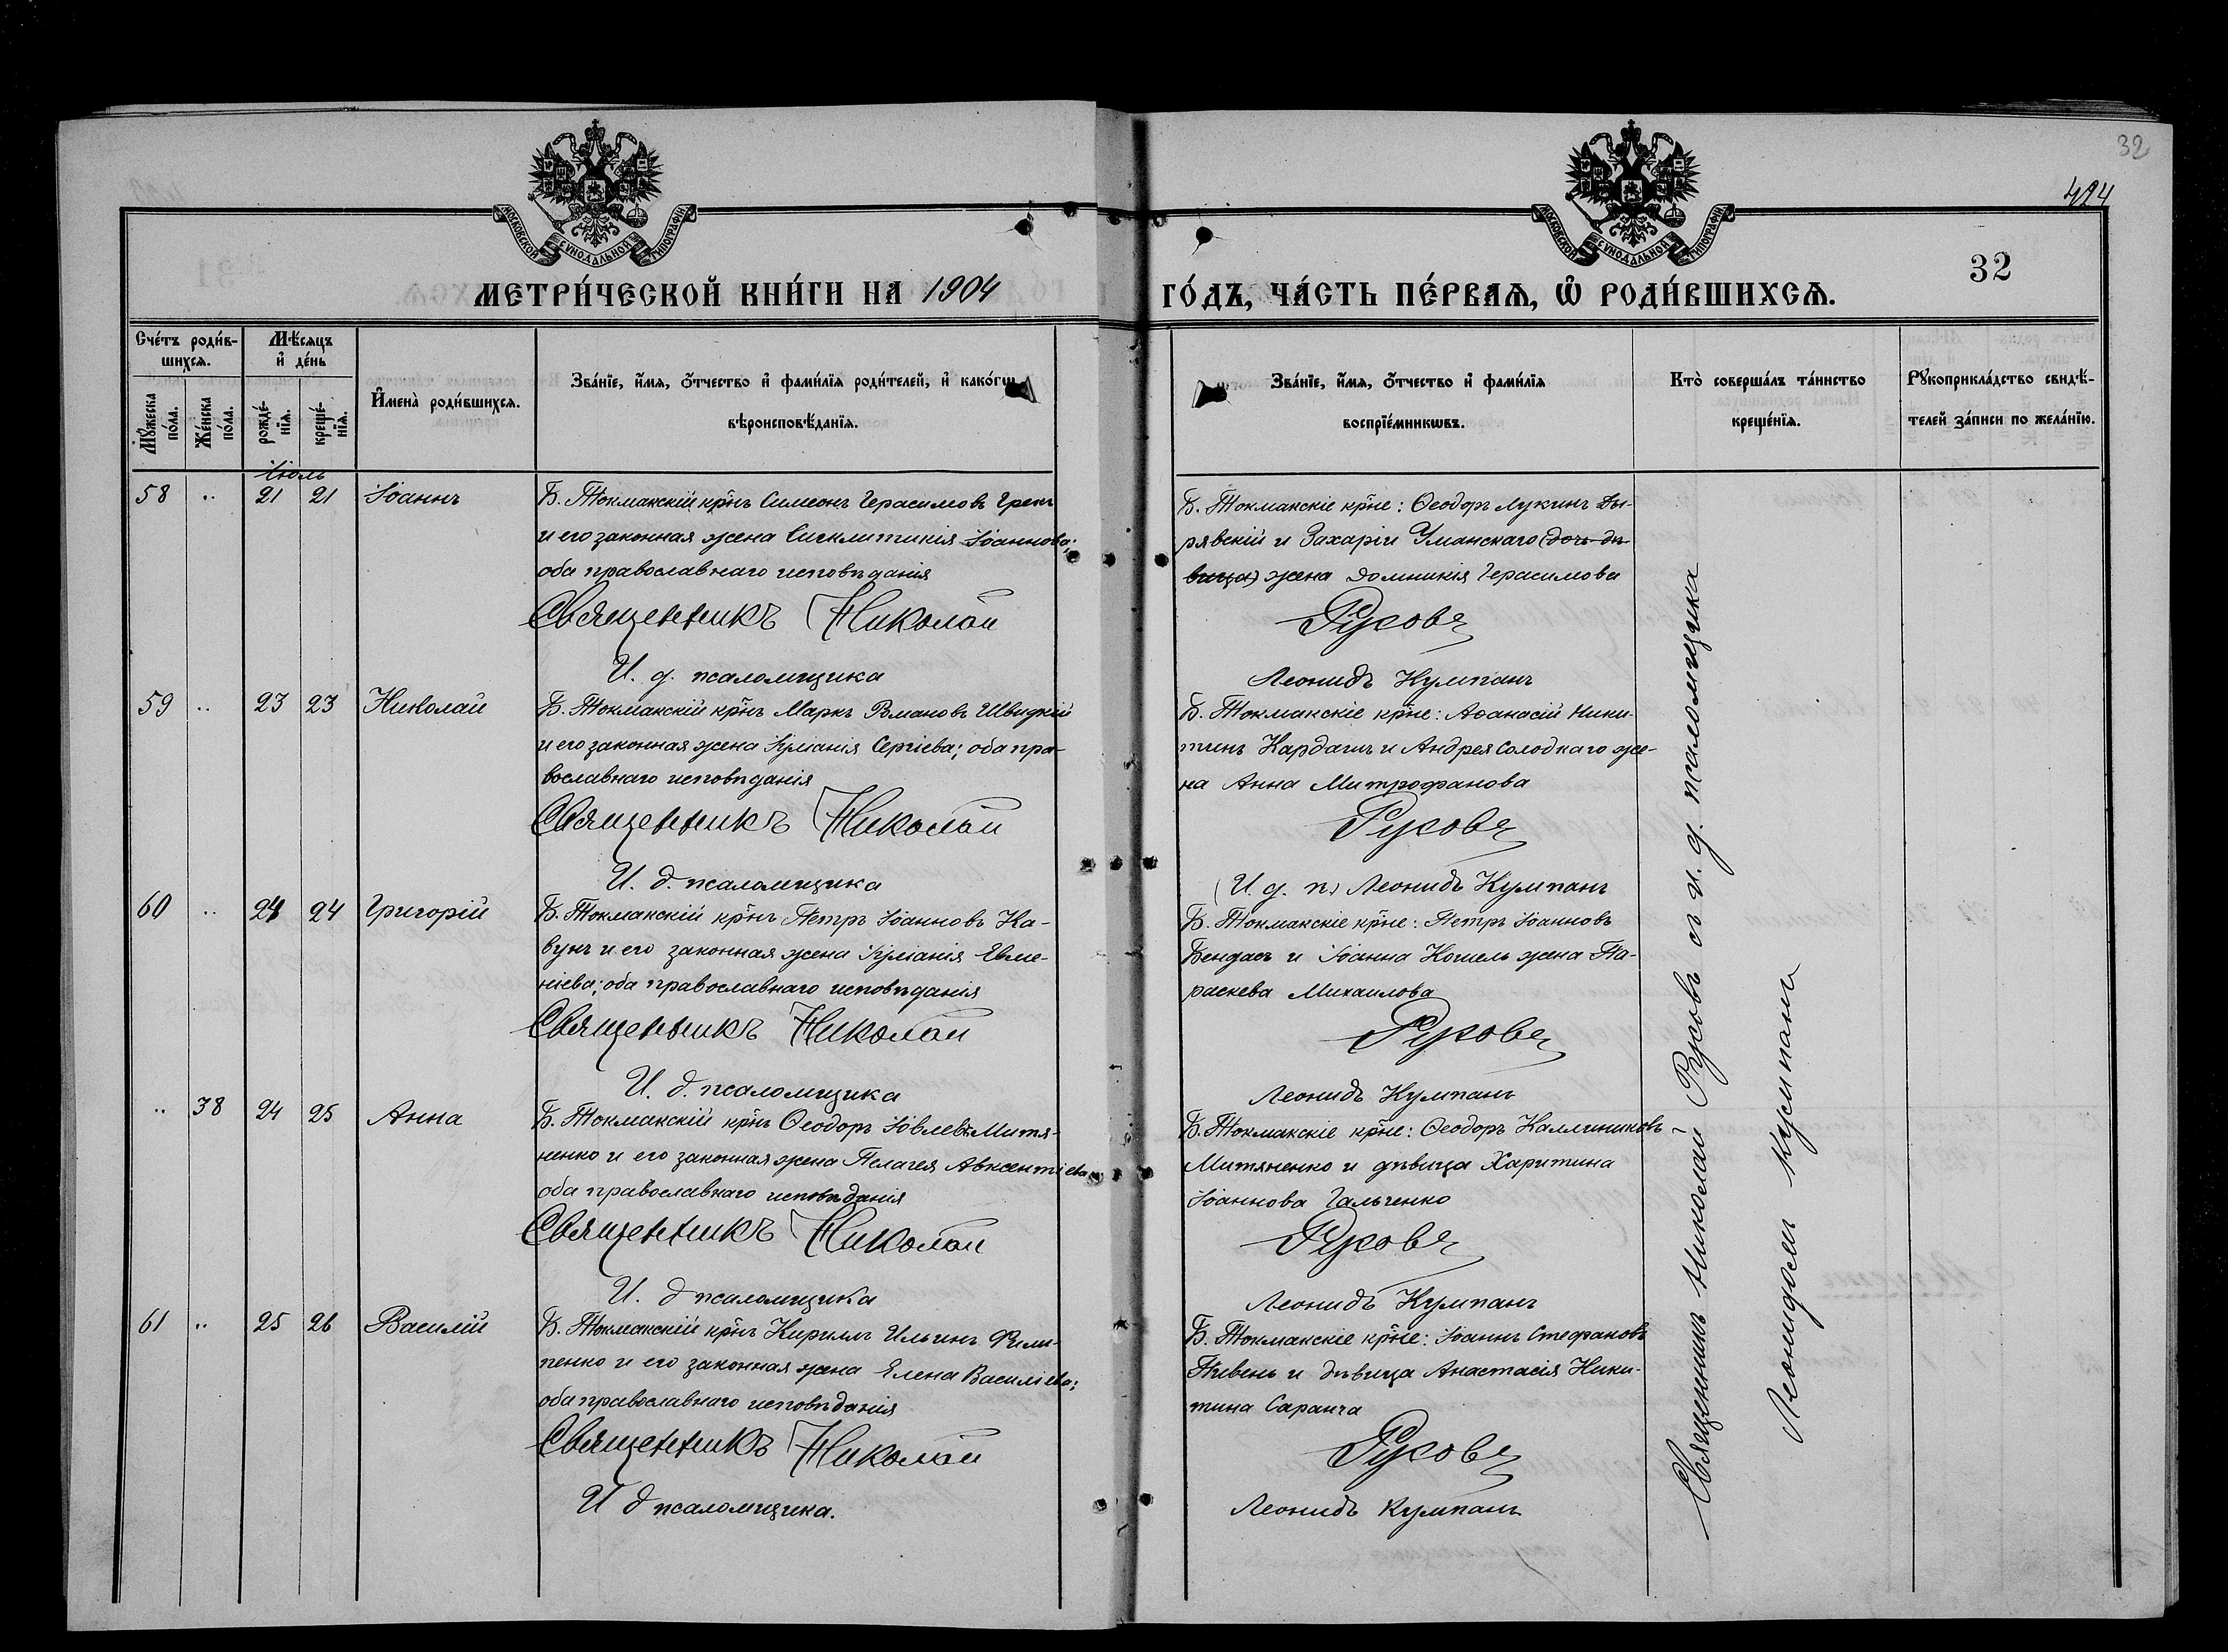 32
424
МОСКОВСКОЙ СѴНОДАЛЬНОЙ ТИПОГРАФІИ
МОСКОВСКОЙ СѴНОДАЛЬНОЙ ТИПОГРАФІИ
МЕТРИ́ЧЕСКОЙ КНИ́ГИ НА 1904
ГО́ДЪ, ЧА́СТЬ ПЕ́РВАѦ, Ѽ РОДИ́ВШИХСѦ.
32
Сче́тъ роди́в-
шихсѧ.
Мѣ́сѧцъ
и҆ де́нь
Мꙋ́жеска по́ла.
Же́нска по́ла.
рожде́-
нїѧ.
креще́-
нїѧ.
И҆мена̀ роди́вшихсѧ.
Зва́нїе, и҆́мѧ, ѻ҆́тчество и҆ фами́лїѧ роди́телей, и҆ како́гѡ
вѣроисповѣ́данїѧ.
Зва́нїе, и҆́мѧ, ѻ҆́тчество и҆ фами́лїѧ
воспрїе́мникѡвъ.
Кто̀ соверша́лъ та́инство
креще́нїѧ.
Рꙋкоприкла́дство свидѣ́-
телей за́писи по жела́нїю.
Іюль
58 .. 21 21 Іоаннъ
Б. Токмакскій кр̃нъ Симеонъ Герасимовъ Грекъ
и его законная жена Синклитикія Іоаннова;
оба православнаго исповѣданія
Священникъ Николай
И. д. псаломщика
Б. Токмакскіе кр̃не: Ѳеодоръ Лукинъ Ды-
рявскій и Захаріи Уманскаго (дочь дѣ-
вица) жена Домникія Герасимова
Русовъ
Леонидъ Кумпанъ
59 .. 23 23 Николай
Б. Токмакскій кр̃нъ Маркъ Романовъ Швидкій
и его законная жена Іуліанія Сергіева; оба пра-
вославнаго исповѣданія
Священникъ Николай
И. д. псаломщика
Б. Токмакскіе кр̃не: Аѳанасій Ники-
тинъ Кардашъ и Андрея Солодкаго же-
на Анна Митрофанова
Русовъ
(И. д. п.) Леонидъ Кумпанъ
60 .. 24 24 Григорій
Б. Токмакскій кр̃нъ Петръ Іоанновъ Ка-
вунъ и его законная жена Іуліанія Евме-
ніева; оба православнаго исповѣданія
Священникъ Николай
И. д. псаломщика
Б. Токмакскіе кр̃не: Петръ Іоанновъ
Бендасъ и Іоанна Кошель жена Па-
раскева Михаилова
Русовъ
Леонидъ Кумпанъ
.. 38 24 25 Анна
Б. Токмакскій кр̃нъ Ѳеодоръ Іовлевъ Митя-
ненко и его законная жена Пелагея Авксентіева
оба православнаго исповѣданія
Священникъ Николай
И. д псаломщика
Б. Токмакскіе кр̃не: Ѳеодоръ Каллиниковъ
Митяненко и дѣвица Харитина
Іоаннова Гальченко
Русовъ
Леонидъ Кумпанъ
61 .. 25 26 Василій
Б. Токмакскій кр̃нъ Кириллъ Ильинъ Фили-
пенко и его законная жена Елена Василіева;
оба православнаго исповѣданія
Священникъ Николай
И д псаломщика.
Б. Токмакскіе кр̃не: Іоаннъ Стефановъ
Пивень и дѣвица Анастасія Ники-
тина Саранча
Русовъ
Леонидъ Кумпанъ
Священникъ Николай Русовъ съ и. д. псаломщика
Леонидомъ Кумпанъ